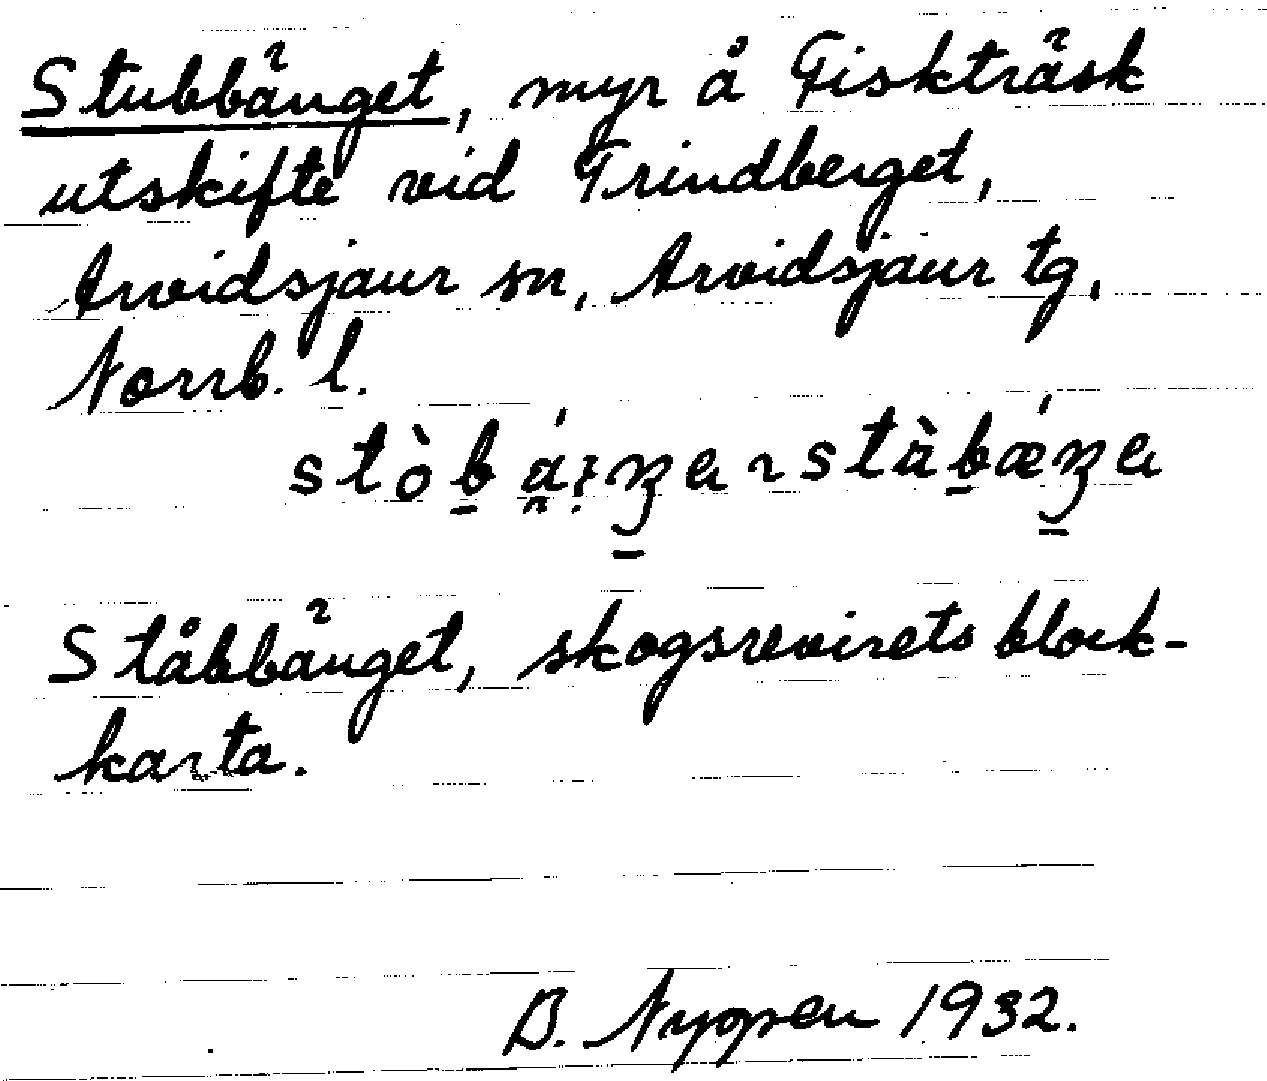 Stubbänget, myr å Fiskträsk
utskifte vid Trindberget,
Arvidsjaur sn, Arvidsjaur tg,
Norrb. l.
Ståbbänget, skogsrevirets block-
karta.
B. Nyppen 1932.